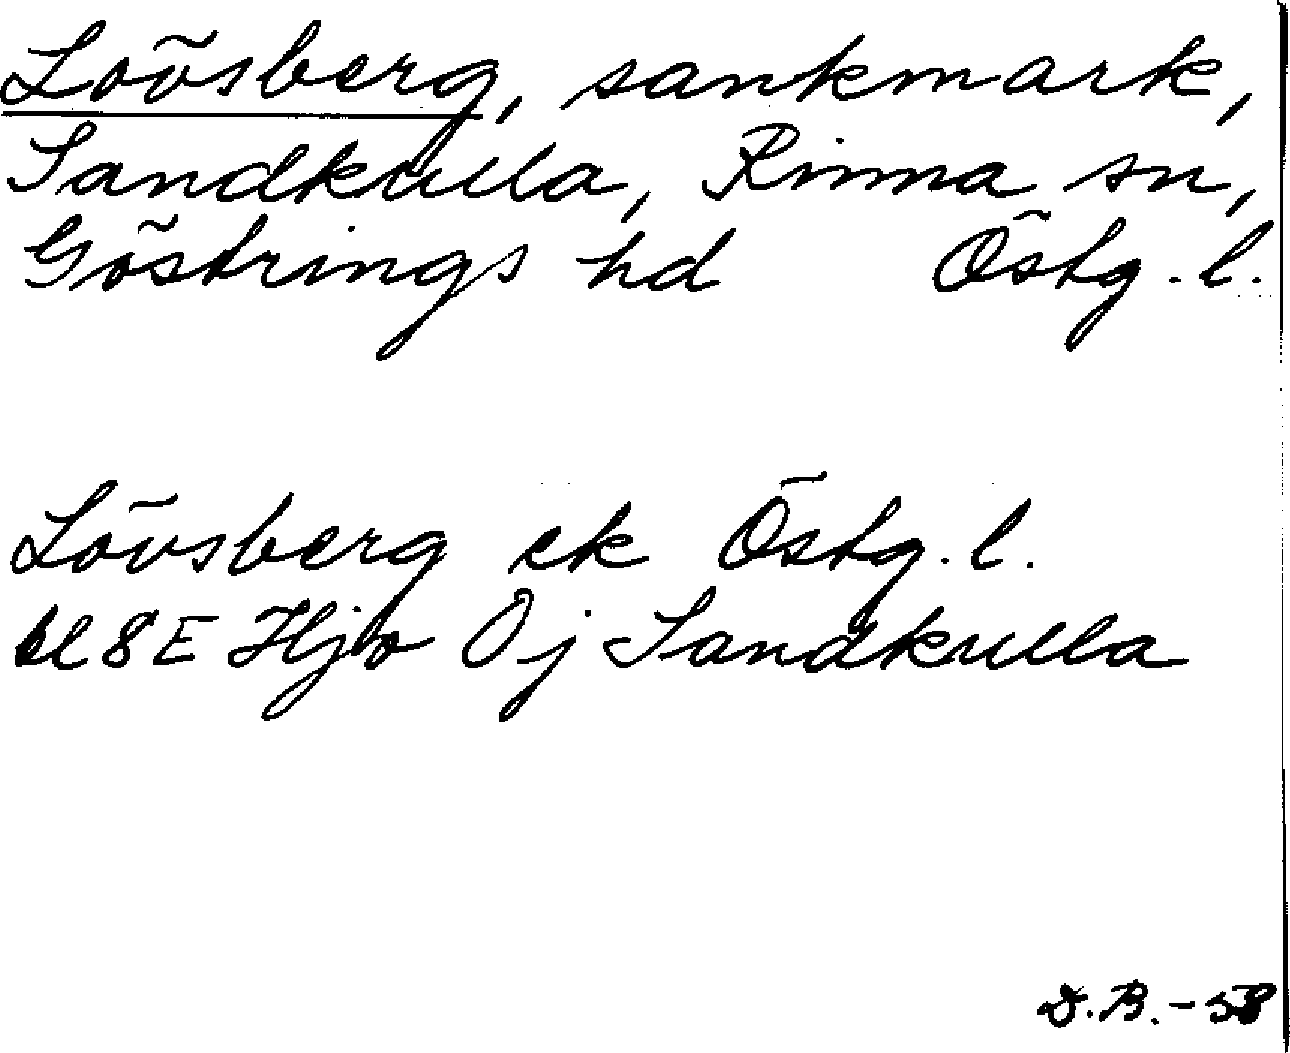 Loösberg, sankmark,
Sandkulla, Rinna sn,
Göstrings hd Östg. l.
Lövsberg ek Östg. l.
bl 8E Hjo Oj Sandkulla
D.B. - 58